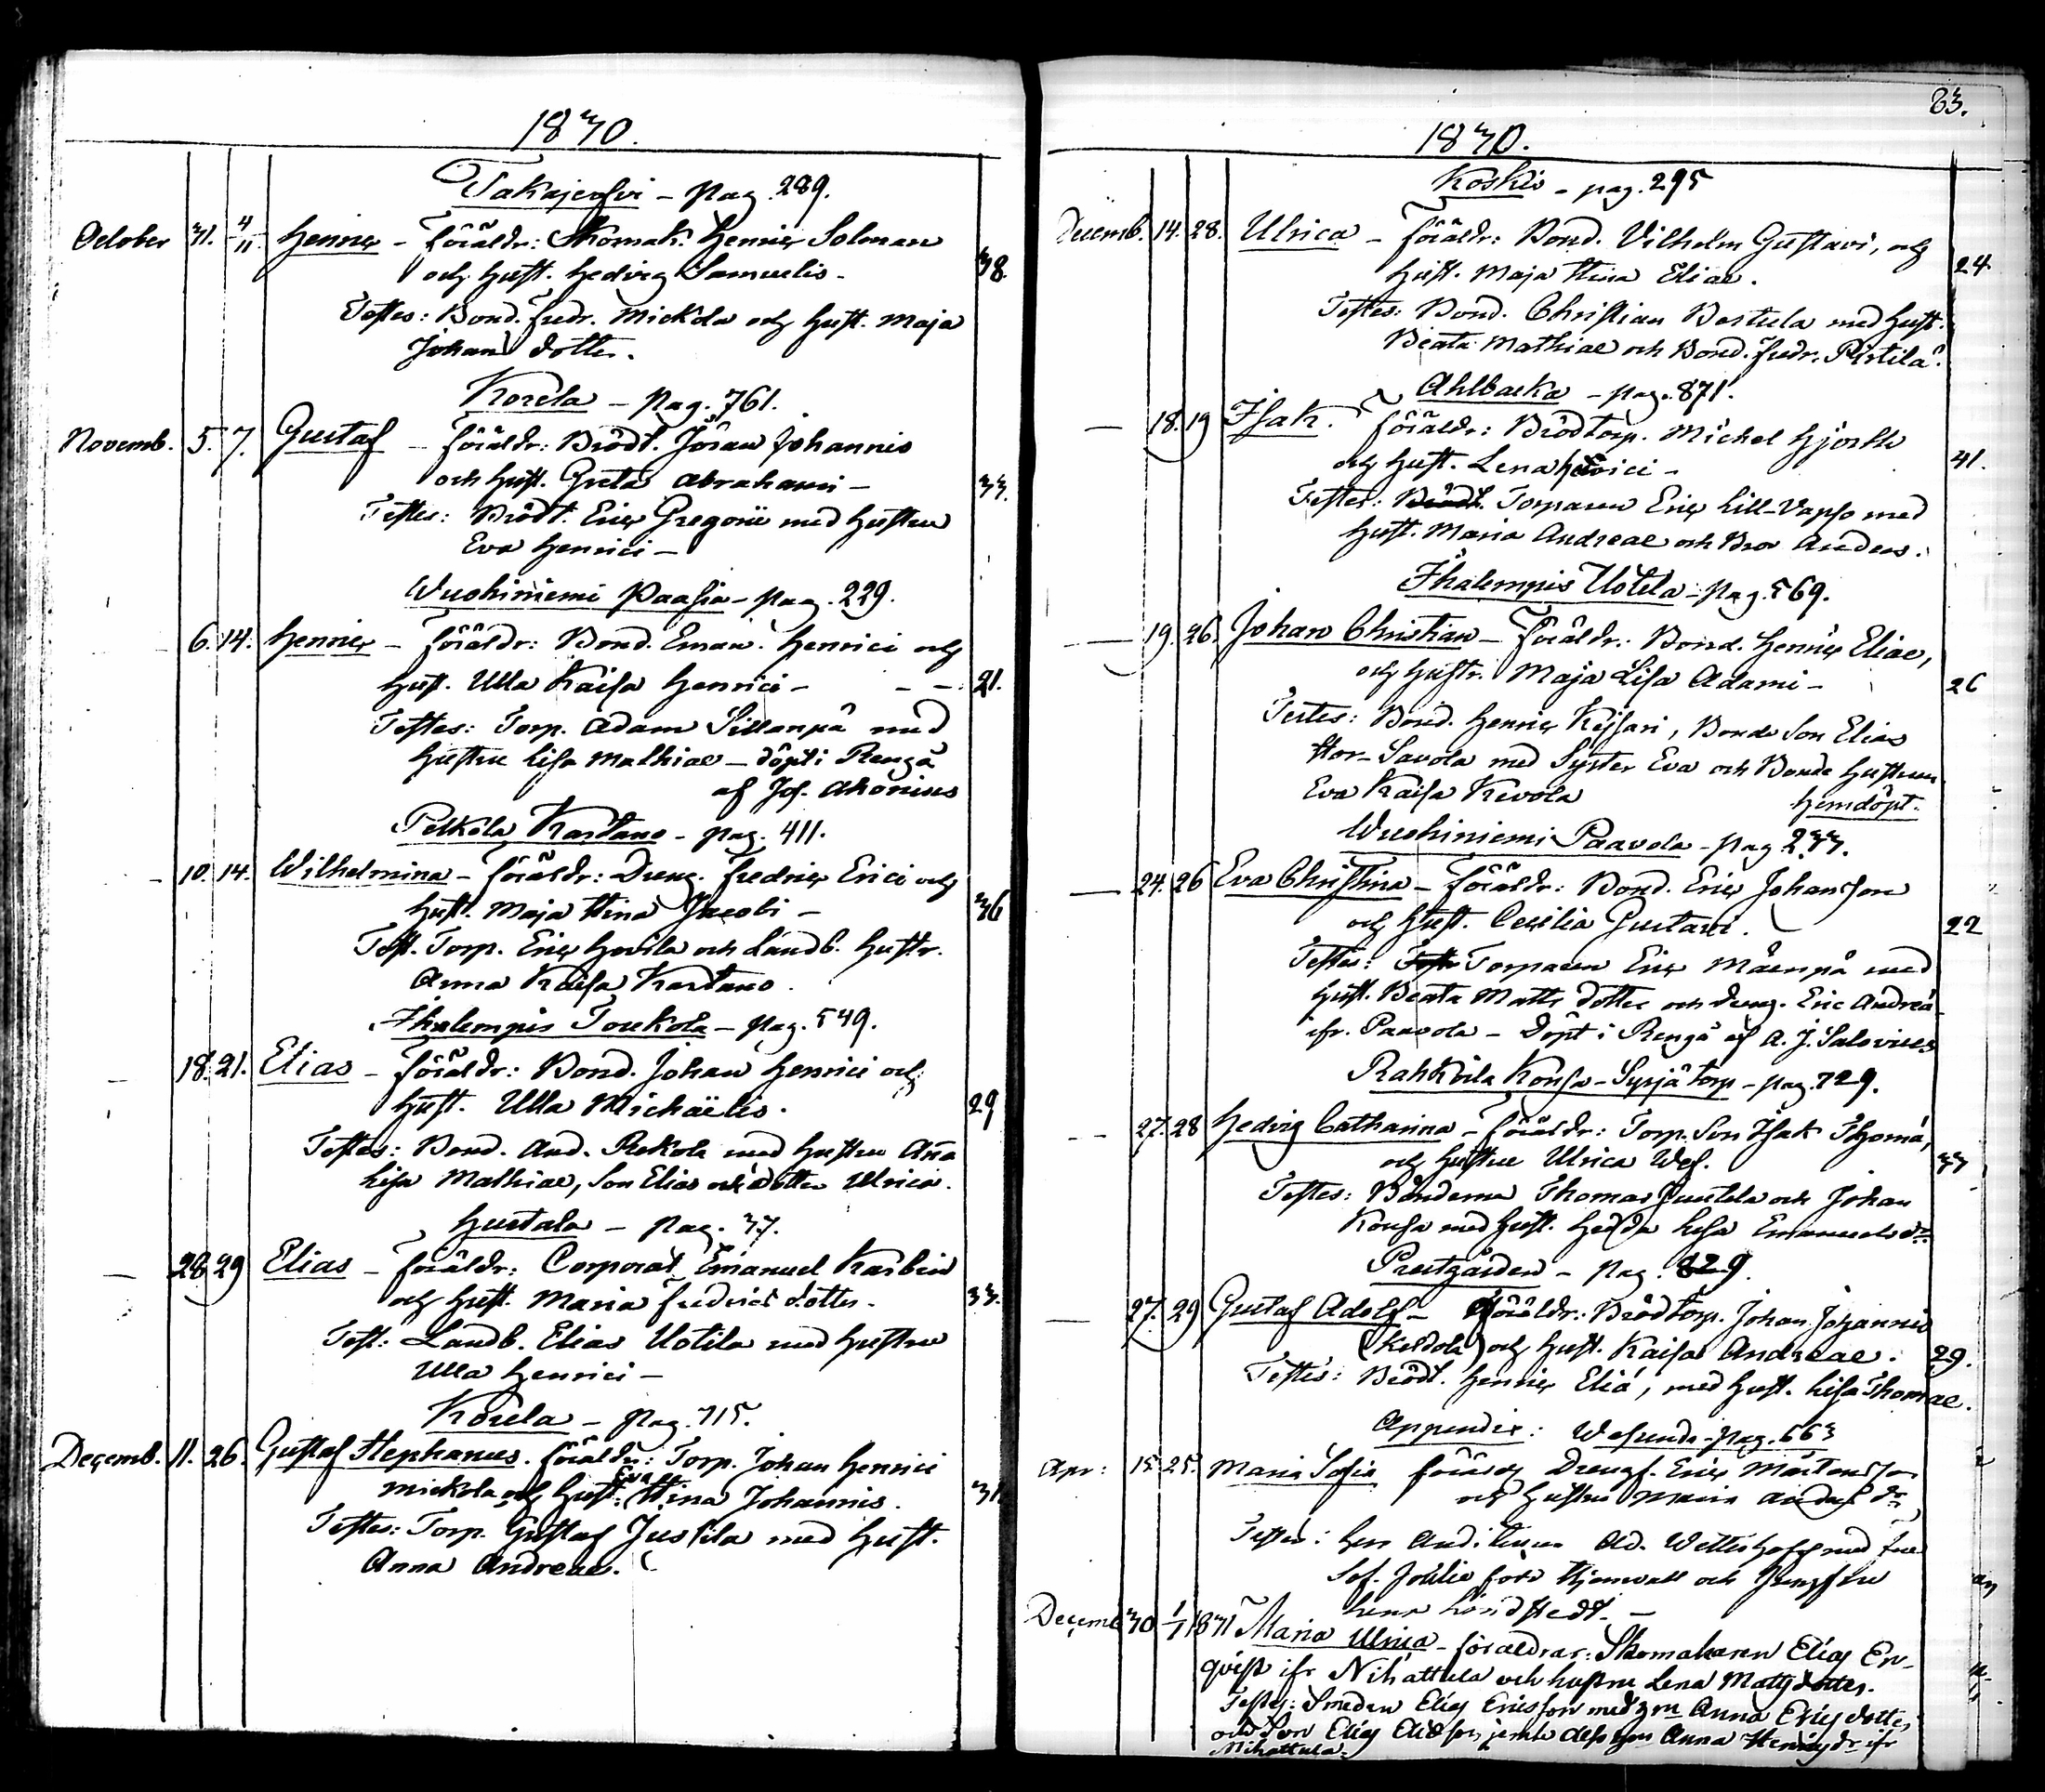 1870.
Takajerfvi - pag. 289.
October 31. 4/11. Henric - Föräldr: Skomak. Henric Soloman
och Hust. Hedvig Samuelis - 38.
Testes: Bond. Fredr. Mickola och Hust. Maja
Johans dotter.
Korela - pag. 761.
Novemb. 5. 7. Gustaf - Föräldr: Brödt. Jöran Johannis
och Hust. Greta Abrahami - 33.
Testes: Brödt. Eric Gregorii med Hustru
Eva Henrici -
Wuohiniemi Paasia - pag. 229.
6. 14. Henric - Föräldr: Bond. Eman. Henrici och
Hust. Ulla Kaisa Henrici - - - 21.
Testes: Torp. Adam Sillanpä med
Hustru Lisa Mathiae - döpt i Rengå
af Jos. Ahonius
Pelkola Kartano - pag. 411.
- 10. 14. Wilhelmina - Föräldr: Dreng. Fredric Erici och
Hust. Maja Stina Jacobi - 36
Test. Torp. Eric Hovila och Landb. Hustr.
Anna Kaisa Kartano.
Ihalempis Toukola - pag. 549.
- 18. 21. Elias - Föräldr: Bond. Johan Henrici och
Hust. Ulla Michaëlis. 29
Testes: Bond. And. Rekola med Hustru Aña
Lisa Mathiae, Son Elias och dotter Ulrica.
Hustala - pag. 37.
- 28. 29 Elias - Föräldr: Corporal Emanuel Karbin
och Hust. Maria Fredrics dotter. 33.
Test: Landb. Elias Uotila med Hustru
Ulla Henrici -
Korela - pag. 715.
Decemb. 11. 26. Gustaf Stephanus. Föräldr: Torp. Johan Henrici
Mickola och Hust: Eva Stina Johannis. 31
Testes: Torp. Gustaf Justila med Hust.
Anna Andreae.
63.
1870.
Koskis - pag. 295
Decemb. 14. 28. Ulrica - Föräldr: Bond. Vilhelm Gustavi, och
Hust. Maja Stina Eliae. 24.
Testes: Bond. Christian Bertula med Hust.
Beata Mathiae och Bond. Fredr. Pertilä.
Ahlbacka - pag. 871.
- 18. 19 Isak. Föräldr: Brödtorp. Michel Hjorth
och Hust. Lena Henrici - 41.
Testes: Brödt. Torparen Eric Lill-Vapso med
Hust. Maria Andreae och Bror Anders.
Ihalempis Uotila - pag. 569.
- 19. 26. Johan Christian - Föräldr: Bond. Henric Eliae,
och Hustr. Maja Lisa Adami - 26
Testes: Bond. Henric Keisari, Bonde Son Elias
Stor-Savola med Syster Eva och Bonde Hustrun
Eva Kaisa Kevola Hemdöpt.
Wuohiniemi Paavola - pag 233.
- 24. 26 Eva Christina - Föräldr: Bond. Eric Johansson
och Hust. Cecilia Gustavi. 22
Testes: Torparen Eric Mäenpä med
Hust. Beata Matts dotter och dreng. Eric Andreä
ifr. Paavola - Döpt i Rengå af A. J. Salovius
Rahkoila Konsa-Syrjä torp - pag. 729.
- 27. 28 Hedvig Catharina - Föräldr: Torp. Son Isak Thomä,
och Hustru Ulrica Wef. 33
Testes: Bönderna Thomas Juntela och Johan
Konsa med Hust. Hedda Lisa Emanuels dr
Prestgården - pag. 829.
- 27. 29 Gustaf Adolf - Föräldr: Brödtorp. Johan Johannis
(Keldola) och Hust. Kaisa Andreae. 29.
Testes: Brödt. Henric Eliä, med Hust. Lisa Thomae.
Appendix: Wesunda pag. 663
Apr: 15. 25. Maria Sofia föräldr Drengs. Eric Mårtensson
och Hustru Maria Anders dr
Testes: Herr Auditeuren Ad. Wetterhoff med Fru
Sof. Julie född Stjernvall och Jungfru
Lena Lindstedt. -
Decemb 30 1/1 1871 Maria Ulrica - föräldrar: Skomakaren Elias En-
qvist ifr Nihattula och hustru Lena Mattsdotter.
Testes: Smeden Elias Ericsson med hustru Anna Ericsdotter
och Son Elias Eliasson, jemte dess Anna Henricsdr ifr
Nihattula.